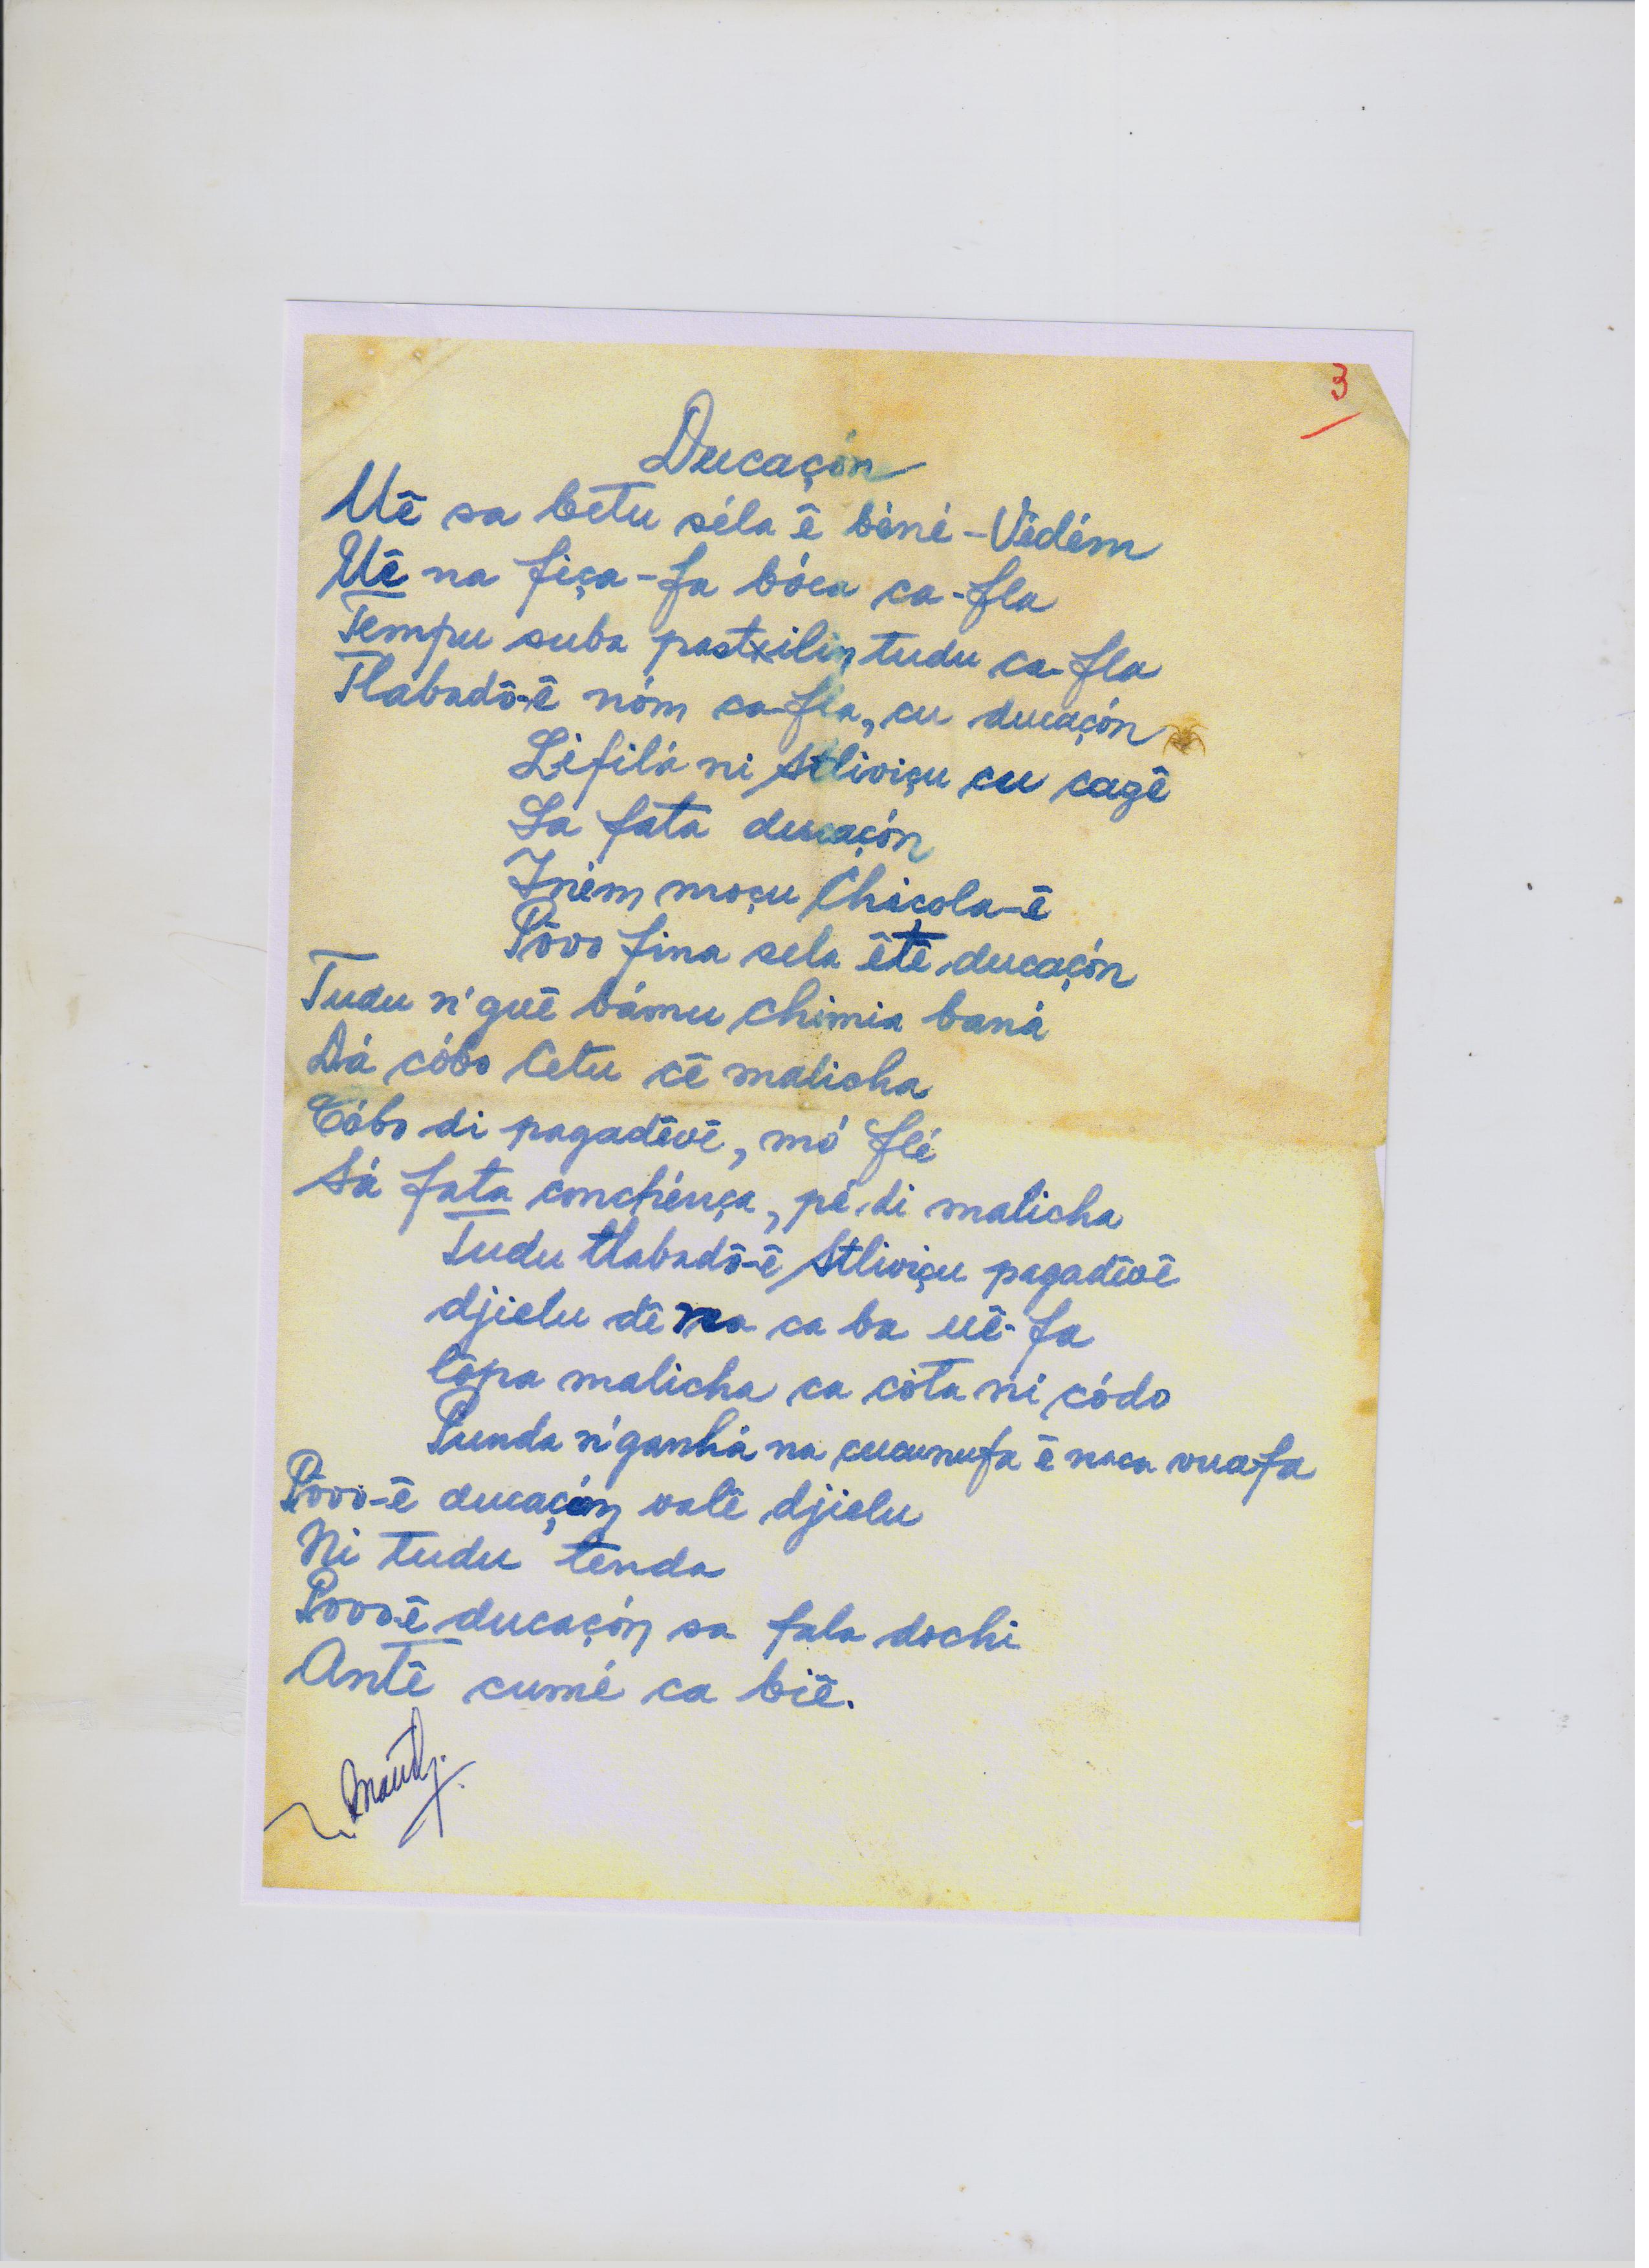 3
Ducaçón
Uê sa betu séla ê béné-Vêdém
Uê na fiça-fa bóca ca-fla
Tempu suba pastxilin tudu ca-fla
Tlabadô-ê nóm ca-fla, cu ducaçón
Lifilá ni stliviçu cu cagê
Sa fata ducaçón
Iném moçu Chicola-ê
Pôvo fina sela êtê ducaçón
Tudu n'guê bámu chimia baná
Dá cóbo Cetu cê malicha
Cóbo di pagadêvê, mó flé
Sá fata conchença, pé di malicha
Tudu tlabadô-ê stliviçu pagadêvê
djielu dê na ca ba uê-fa
lôpa malicha ca cóta ni códo
Punda n'ganhá na cucunufa ê naca vuafa
Pôvo-ê ducaçón valê djielu
Ni tudu tenda
Povo-ê ducaçón sa fala dochi
Antê cumé ca biê.